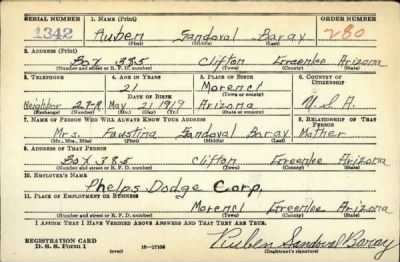 SERIAL NUMBER 1. NAME (Print) ORDER NUMBER
1342 Ruben Sandoval Baray 280
(First) (Middle) (Last)
2. ADDRESS (Print)
Box 385 Clifton Greenlee Arizona
(Number and street or R. F. D. number) (Town) (County) (State)
3. TELEPHONE 4. AGE IN YEARS 5. PLACE OF BIRTH 6. COUNTRY OF CITIZENSHIP
21 Morenci
DATE OF BIRTH (Town or county)
Neighbor 27-R May 21 1919 Arizona U.S.A.
(Exchange) (Number) (Mo.) (Day) (Yr.) (State or country)
7. NAME OF PERSON WHO WILL ALWAYS KNOW YOUR ADDRESS 8. RELATIONSHIP OF THAT PERSON
Mrs. Faustina Sandoval Baray Mother
(Mr., Mrs., Miss) (First) (Middle) (Last)
9. ADDRESS OF THAT PERSON
Box 385 Clifton Greenlee Arizona
(Number and street or R. F. D. number) (Town) (County) (State)
10. EMPLOYER'S NAME
Phelps Dodge Corp.
11. PLACE OF EMPLOYMENT OR BUSINESS
Morenci Greenlee Arizona
(Number and street or R. F. D. number) (Town) (County) (State)
I AFFIRM THAT I HAVE VERIFIED ABOVE ANSWERS AND THAT THEY ARE TRUE.
REGISTRATION CARD
D. S. S. Form 1 (over) 16-17105 Ruben Sandoval Baray
(Registrant's signature)